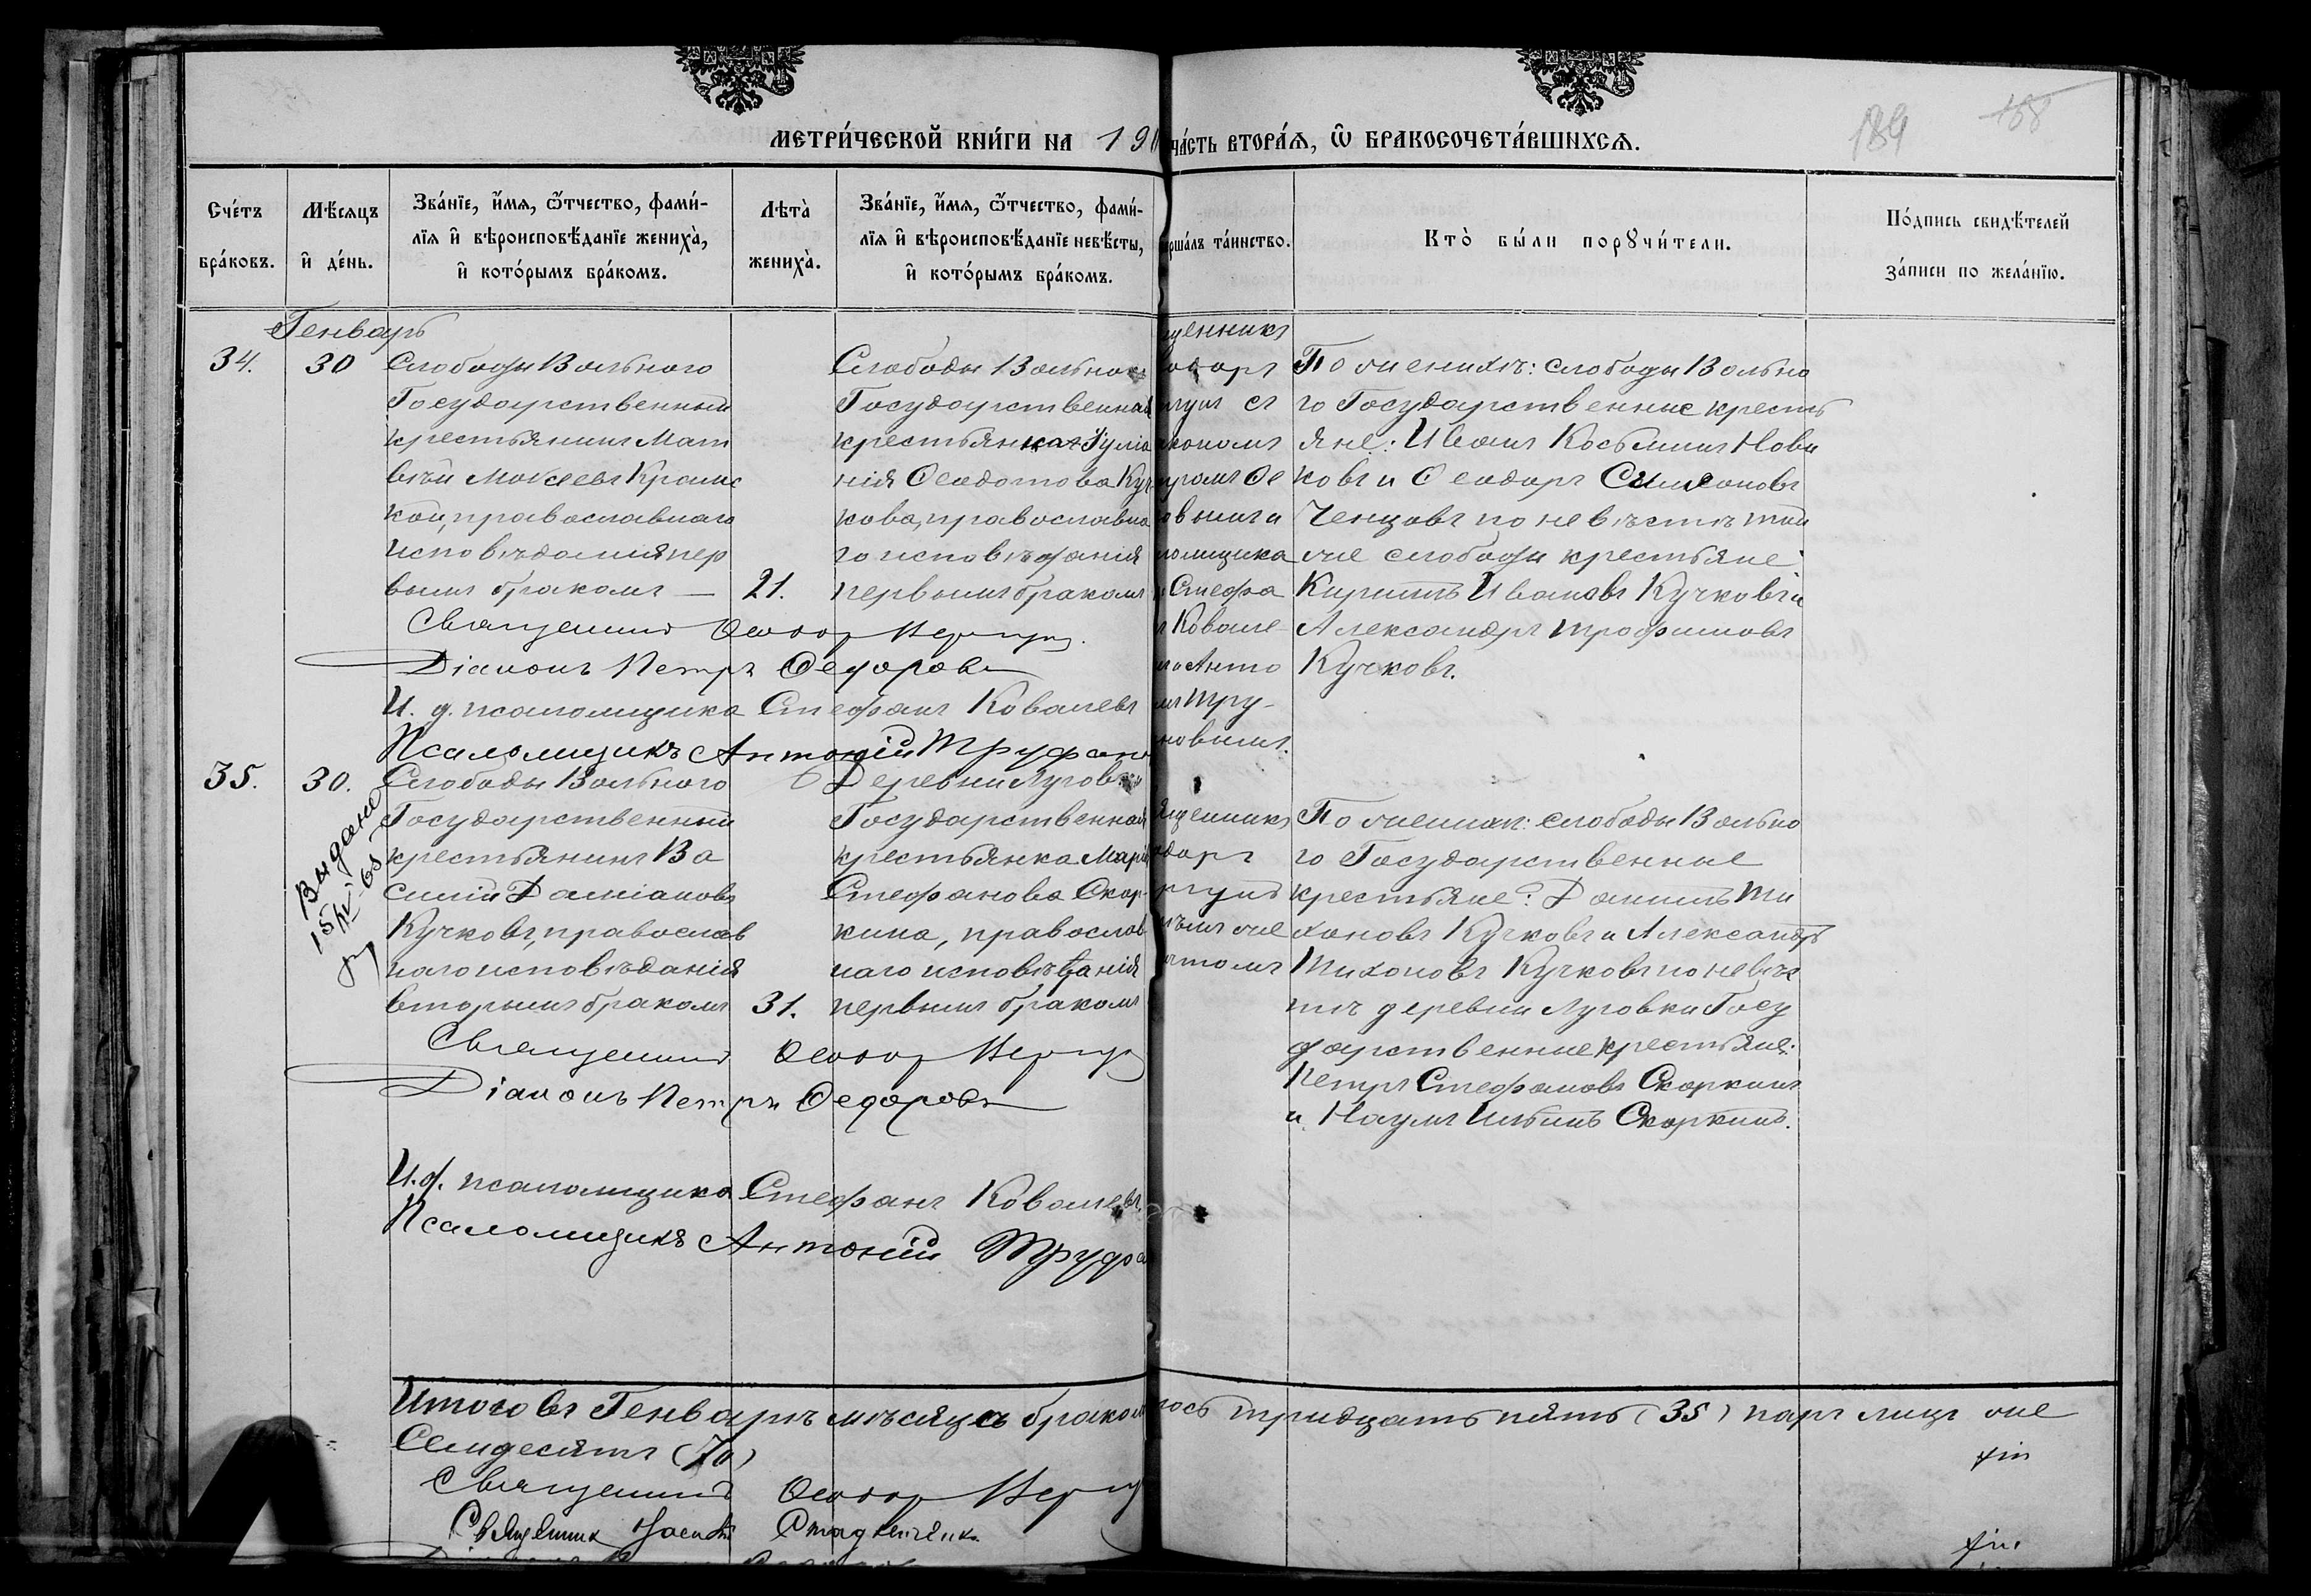 МЕТРИ́ЧЕСКОЙ КНИ́ГИ НА 19
ЧА́СТЬ ВТОРА́Я, Ѿ БРАКОСОЧЕТА́ВШИХСѦ.
189
188
Сче́тъ бра́ковъ.
Мѣ́сяцъ и҆ де́нь.
Зва́нїе, и҆́мя, ѻ҆́тчество, фами́-
лїя и҆ вѣроисповѣ́данїе жениха̀,
и҆ кото́рымъ бра́комъ.
Лѣта̀ жениха̀.
Зва́нїе, и҆́мя, ѻ҆́тчество, фами́-
лїя и҆ вѣроисповѣ́данїе невѣ́сты,
и҆ кото́рымъ бра́комъ.
ршалъ та́инство.
Кто̀ бы́ли порꙋчи́тели.
По́дпись свидѣ́телей
за́писи по жела́нїю.
Генварь
34.
30
Слободы Вольного
Государственный
крестьянинъ Мат
вѣй Мокеевъ Крамс
кой, православнаго
исповѣданія пер
вымъ бракомъ —
21.
Слободы Вольнаго
Государственная
крестьянка Іулiа
нія Ѳеодотова Куч
кова, православна
го исповѣданія
первымъ бракомъ
щенникъ
одоръ
ргунъ съ
акономъ
тромъ Ѳе
овымъ и
ломщика
Стефа
Ковале
Анто
Тру-
новымъ.
По женихѣ: слободы Вольно
го Государственные кресть
яне: Иванъ Косьминъ Нови
ковъ и Ѳеодоръ Симеоновъ
Ченцовъ по невѣстѣ той
же слободы крестьяне
Кириллъ Ивановъ Кучковъ и
Александръ Трофимовъ
Кучковъ.
Священникъ Ѳеодор
Діаконъ Петръ Ѳедоровъ
И. д. псаломщика Стефанъ Ковалевъ
Псаломщикъ Антоній Труфано
35.
30.
Выдано
15
68
Слободы Вольного
Государственный
крестьянинъ Ва
силій Даміановъ
Кучковъ, православ
наго исповѣданія
вторымъ бракомъ
31.
Деревни Луговки
Государственная
крестьянка Марія
Стефанова Скор-
кина, православ
наго исповѣданія
первымъ бракомъ
ященникъ
одоръ
ргунъ
мъ же
чтомъ
По женихѣ: слободы Вольно
го Государственные
крестьяне: Даниилъ Ти
хоновъ Кучковъ и Александръ
Тихоновъ Кучковъ по невѣс
тѣ деревни Луговки Госу
дарственные крестьяне:
Петръ Стефановъ Скоркинъ
и Наумъ Ильинъ Скоркинъ.
Священникъ Ѳеодор
Діаконъ Петръ Ѳедоровъ
И. д. псаломщика Стефанъ Ковалевъ
Псаломщикъ Антоній Труфа
Итого въ Генварѣ мѣсяцѣ браком
лось тридцать пять (35) паръ лицъ же
Семдесятъ (70)
Священникъ Ѳеодор
Священник